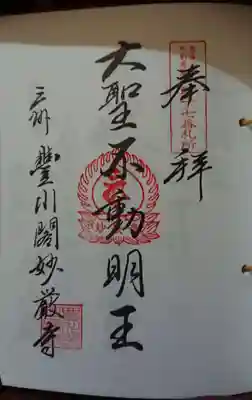 奉拝
大聖不動明王
三州 豊川閣妙厳寺